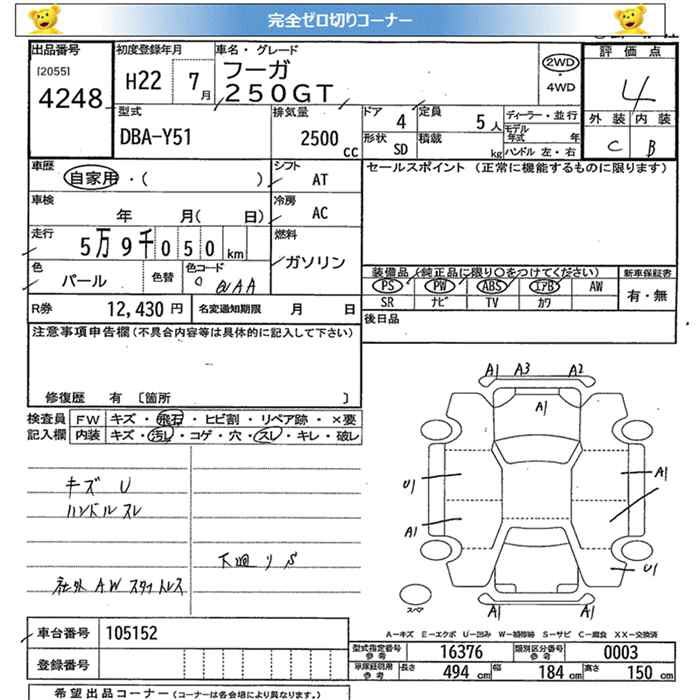 完全ゼロ切りコーナー
出品番号 初度登録年月 車名・グレード 評価点
[2055] H22 7月 フーガ 2WD ・ 4WD 4
4248 250GT
型式 排気量 ドア 4 定員 5人 ディーラー・並行 外装 内装
DBA-Y51 2500cc 形状 SD 積載 kg モデル年式 年 C B
ハンドル 左・右
車歴 自家用・( ) シフト AT セールスポイント (正常に機能するものに限ります)
車検 年 月( 日) 冷房 AC
走行 5万9千050km 燃料 ガソリン
色 パール 色替 色コード QAA 装備品 (純正品に限り○をつけてください) 新車保証書
PS PW ABS エアB AW 有・無
SR ナビ TV カワ
R券 12,430円 名変通知期限 月 日 後日品
注意事項申告欄(不具合内容等は具体的に記入して下さい)
修復歴 有 〔箇所 〕
検査員 FW キズ・飛石・ヒビ割・リペア跡・×要
記入欄 内装 キズ・汚レ・コゲ・穴・スレ・キレ・破レ
A1 A3 A2
A1
キズ U U1 A1
ハンドルスレ
A1
下廻りS
社外AWスタットレス U1
スペア A1 A1
A－キズ E－エクボ U－凹み W－補修跡 S－サビ C－腐食 XX－交換済
車台番号 105152 型式指定番号参考 16376 類別区分番号参考 0003
登録番号 車庫証明用参考 長さ 494cm 幅 184cm 高さ 150cm
希望出品コーナー(コーナーは各会場により異なります。)